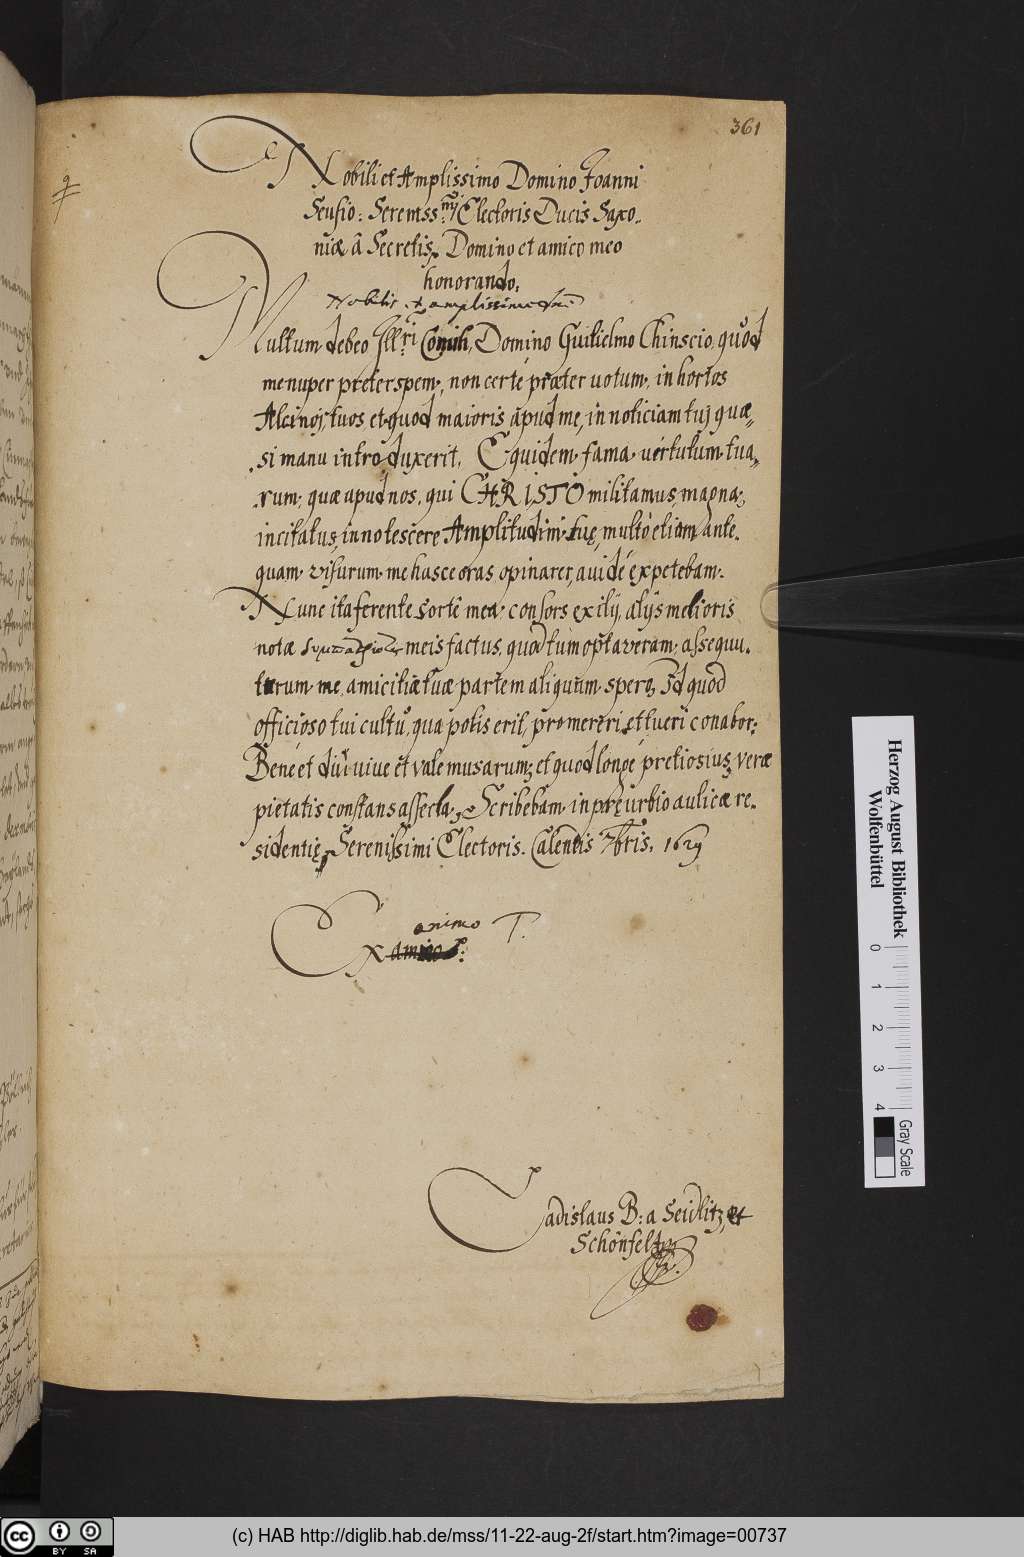 361
Nobili et Amplissimo Domino Joanni
Seusio: Sereniss:mi Electoris Ducis Saxo-
niæ â Secretis, Domino et amico meo
honorando.
Nobilis et amplissime dñe
Multum debeo Ill:ri Comiti, Domino Guilielmo Chinscio, quòd
me nuper preter spem, non certè præter uotum, in hortos
Alcinoj tuos, et quod maioris apud me, in noticiam tuj qua-
si manu introduxerit. Equidem fama uirtutum tua-
rum, quæ apud nos, qui CHRISTO militamus magna,
incitatus, innotescere Amplitudini tuę, multò etiam ante
quam visurum me hasce oras opinarer, auidè expetebam.
Nunc ita ferente sorte mea, consors exilij, alijs melioris
notæ meis factus, quod tum optaveram, assequu-
turum me, amicitiæ tuæ partem aliquam, spero, Id quod
officioso tui cultu, qua potis erit, promereri, et tueri conabor:
Bene et diù uiue et vale musarum, et quod longe pretiosius, veræ
pietatis constans assecla, Scribebam in pręurbio aulicæ re-
sidentię Serenissimi Electoris. Calendis 7bris. 1629
animo T.
Ex
Ladislaus B: a Seidlitz, et
Schönfeldt
Herzog August Bibliothek
Wolfenbüttel
0 1 2 3 4
Gray Scale
cc BY SA
(c) HAB http://diglib.hab.de/mss/11-22-aug-2f/start.htm?image=00737